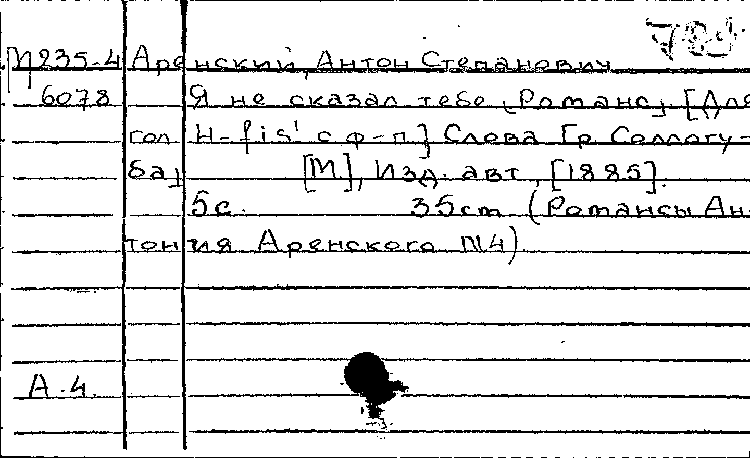 М235-4 Аренский, Антон Степанович
6078 Я не сказал тебе [Романс] [Для
гол H-fis' с ф-п] Слова [гр Соллогу-
ба]
[М], Изд. авт, [1885].
5с. 35cm (Романсы Ан-
тония Аренского №4).
А.4.